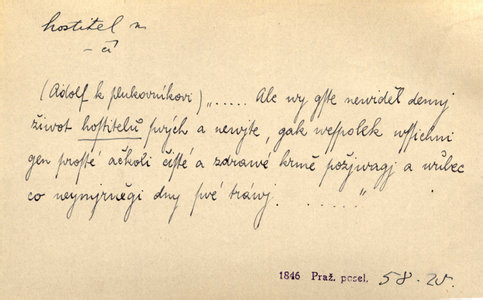 hostitel m
– čí
(Adolf k plukovníkovi) „..... Ale wy gste newiděl denný
žiwot hostitelů swých a newjte, gak wespolek wssichni
gen prosté ačkoli čisté a zdrawé krmě požjwagj a wůbec
co neymjrněgi dny swé tráwj. ......."
1846 Praž. posel. 58.